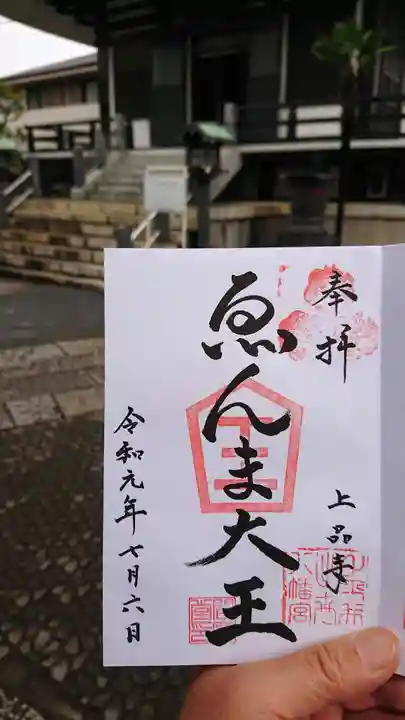 奉拝
ゑんま大王
上品寺
令和元年七月六日